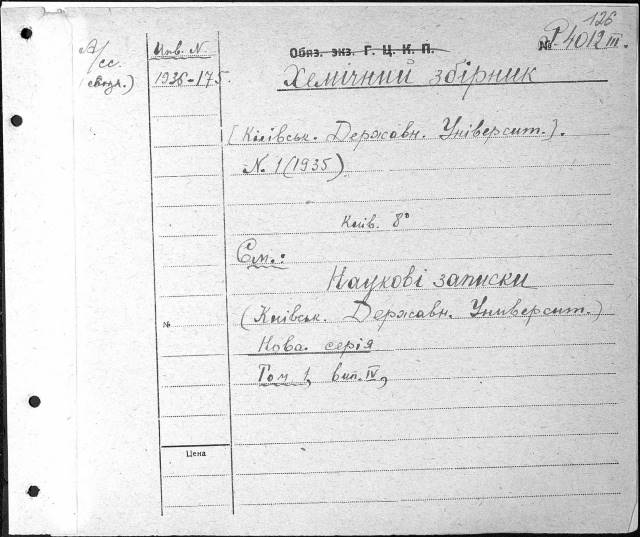 126
Р. 4012 III.
№
Обяз. экз. Г. Ц. К. П.
А/сс.
Инв. N.
1936-175.
Хемічний збірник
[Київськ. Державн. Університ.].
N. 1 (1935)
Київ. 8°
См.:
Наукові записки
(Київськ. Державн. Университ.)
Нова серія
Том 1, вип. IV,
№
Цена